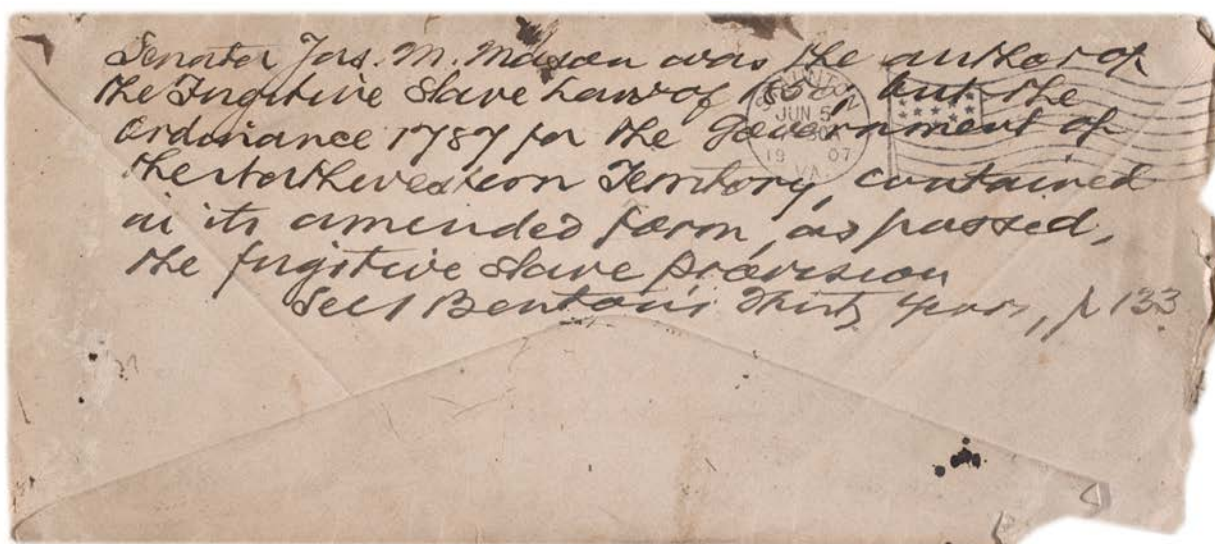 Senator Jas. M. Mason was the author of
the Fugitive Slave Law of 1850, but the
Ordinance 1787 for the Government of
the Northwestern Territory, contained
in its amended form, as passed,
the fugitive slave provision
See 1 Benton's Thirty Years, p 133
STAUNTON
JUN 5
30
19 07
VA.